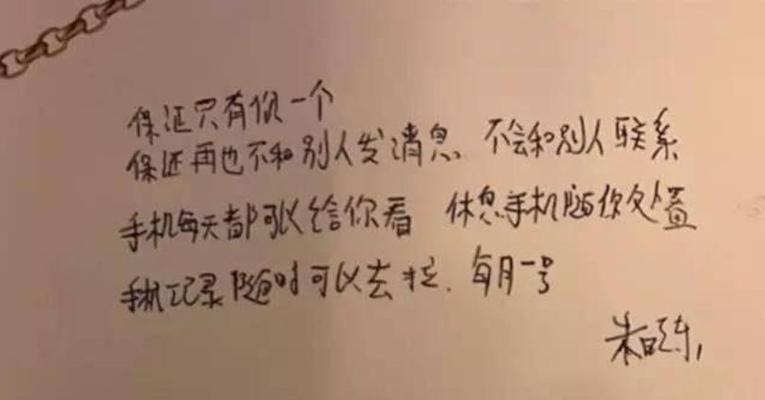 保证只有你一个
保证再也不和别人发消息 不会和别人联系
手机每天都可以给你看 休息手机随你处置
手机记录随时可以去拉、每月一号
朱晓东